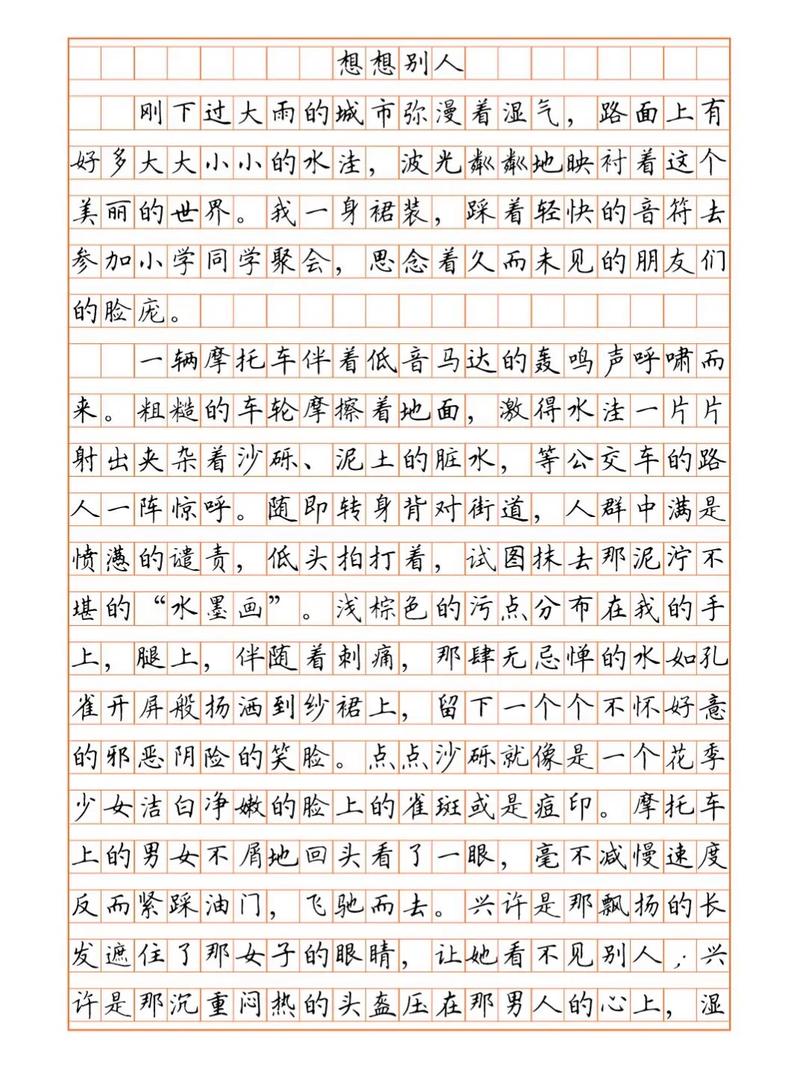 想想别人
刚下过大雨的城市弥漫着湿气，路面上有
好多大大小小的水洼，波光粼粼地映衬着这个
美丽的世界。我一身裙装，踩着轻快的音符去
参加小学同学聚会，思念着久而未见的朋友们
的脸庞。
一辆摩托车伴着低音马达的轰鸣声呼啸而
来。粗糙的车轮摩擦着地面，激得水洼一片片
射出夹杂着沙砾、泥土的脏水，等公交车的路
人一阵惊呼。随即转身背对街道，人群中满是
愤懑的谴责，低头拍打着，试图抹去那泥泞不
堪的“水墨画”。浅棕色的污点分布在我的手
上，腿上，伴随着刺痛，那肆无忌惮的水如孔
雀开屏般扬洒到纱裙上，留下一个个不怀好意
的邪恶阴险的笑脸。点点沙砾就像是一个花季
少女洁白净嫩的脸上的雀斑或是痘印。摩托车
上的男女不屑地回头看了一眼，毫不减慢速度
反而紧踩油门，飞驰而去。兴许是那飘扬的长
发遮住了那女子的眼睛，让她看不见别人；兴
许是那沉重闷热的头盔压在那男人的心上，湿